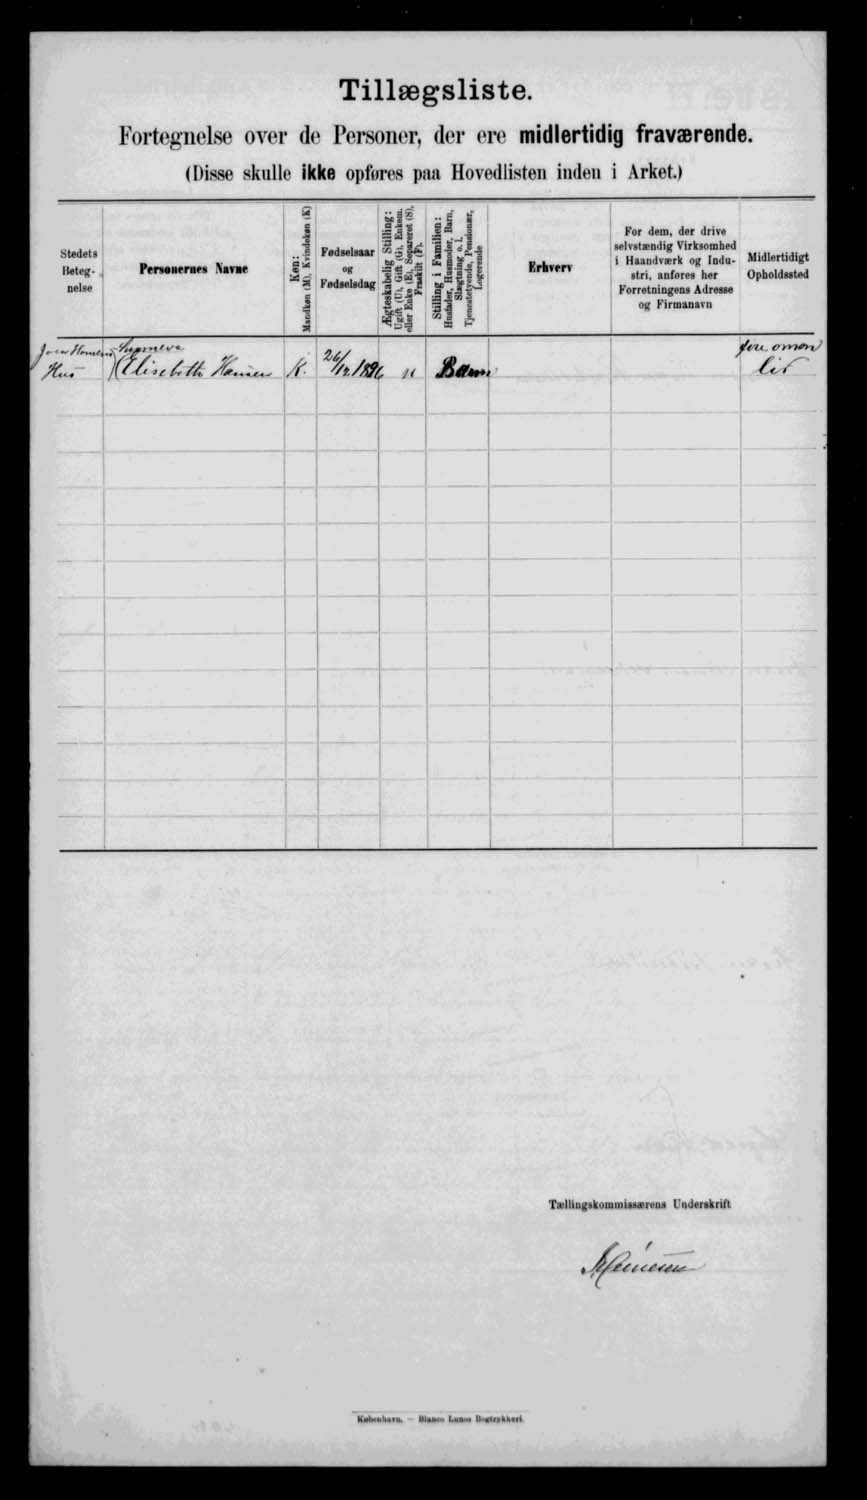 Tillægsliste.
Fortegnelse over de Personer, der ere midlertidig fraværende.
(Disse skulle ikke opføres paa Hovedlisten inden i Arket.)
Stedets
Beteg-
nelse
Personernes Navne
Køn:
Mandkøn (M), Kvindekøn (K)
Fødselsaar
og
Fødselsdag
Ægteskabelig Stilling:
Ugift (U), Gift (G), Enkem.
eller Enke (E), Separeret (S),
Fraskilt (F).
Stilling i Familien:
Husfader, Husmoder, Barn,
Slægtning o. l.
Tjenestetyende, Pensionær,
Logerende
Erhverv
For dem, der drive
selvstændig Virksomhed
i Haandværk og Indu-
stri, anføres her
Forretningens Adresse
og Firmanavn
Midlertidigt
Opholdssted
Hus
Elisebeth Hansen
K.
26/12 1896
u
Barn
Tællingskommissærens Underskrift
København. — Bianco Lunos Bogtrykkeri.